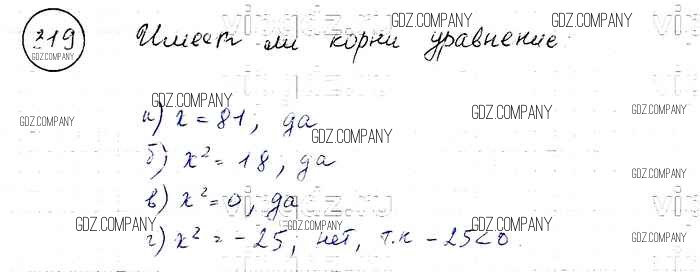 GDZ.COMPANY
219 Имеет ли корни уравнение:
GDZ.COMPANY
GDZ.COMPANY
GDZ.COMPANY
GDZ.COMPANY
GDZ.COMPANY
а) x = 81; да
GDZ.COMPANY
б) x² = 18; да
в) x² = 0, да
GDZ.COMPANY
GDZ.COMPANY
GDZ.COMPANY
г) x² = -25; нет, т.к -25<0.
GDZ.COMPANY
GDZ.COMPANY